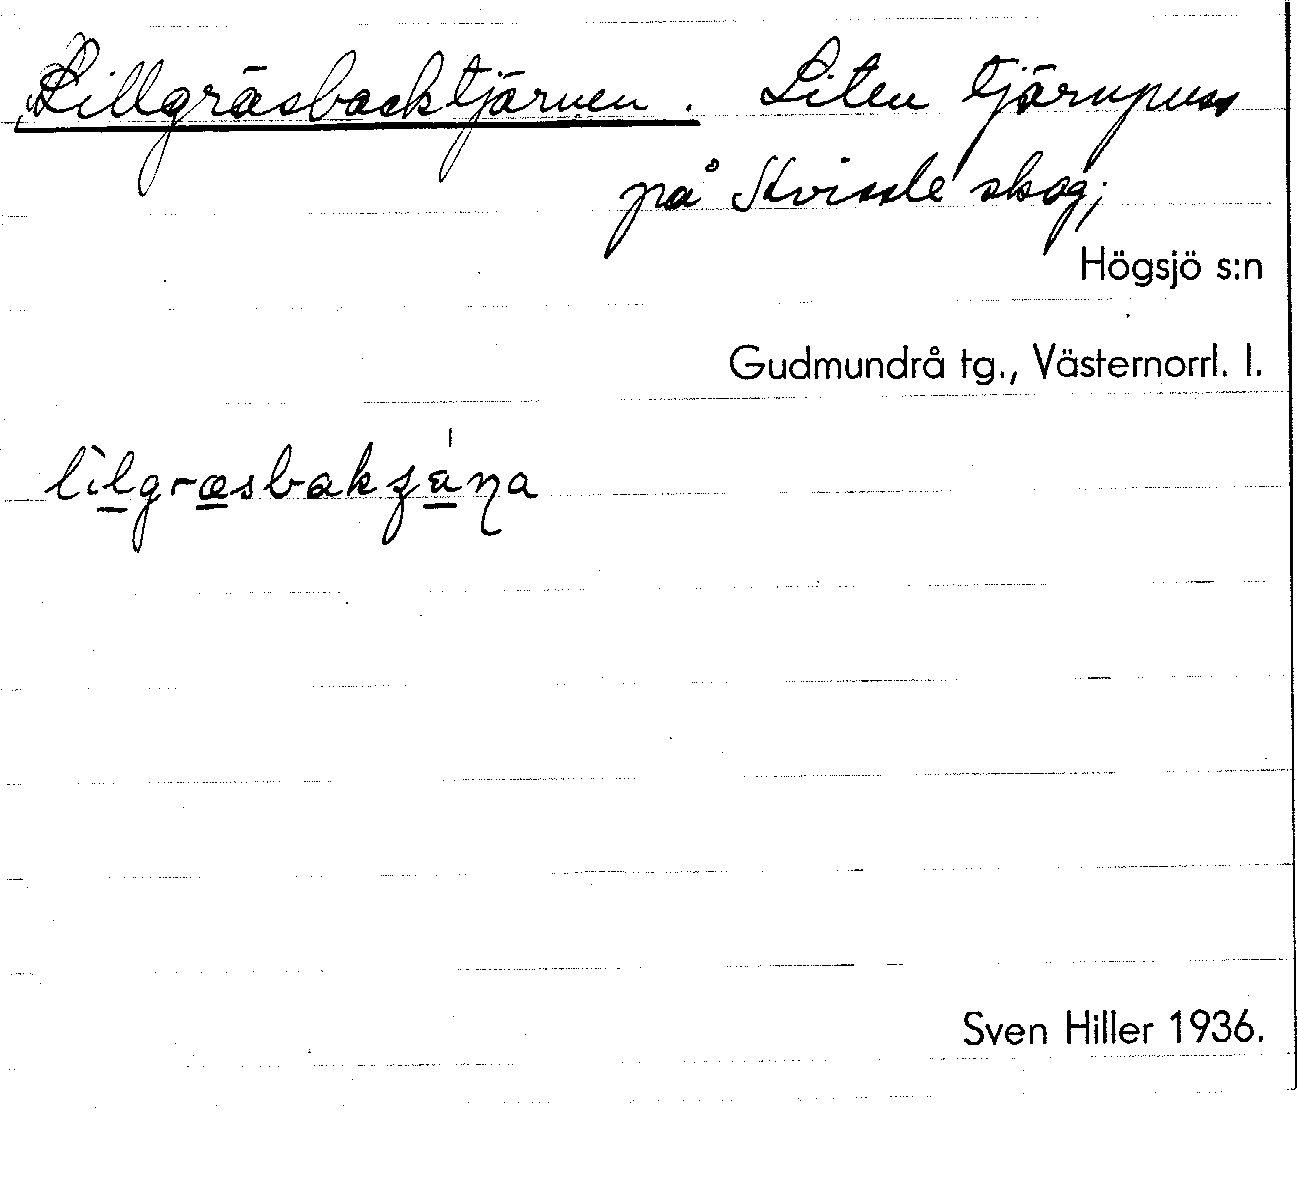 Lillgräsbacktjärnen. Liten tjärnpuss
på Kvissle skog;
Högsjö s:n
Gudmundrå tg., Västernorrl. l.
Sven Hiller 1936.